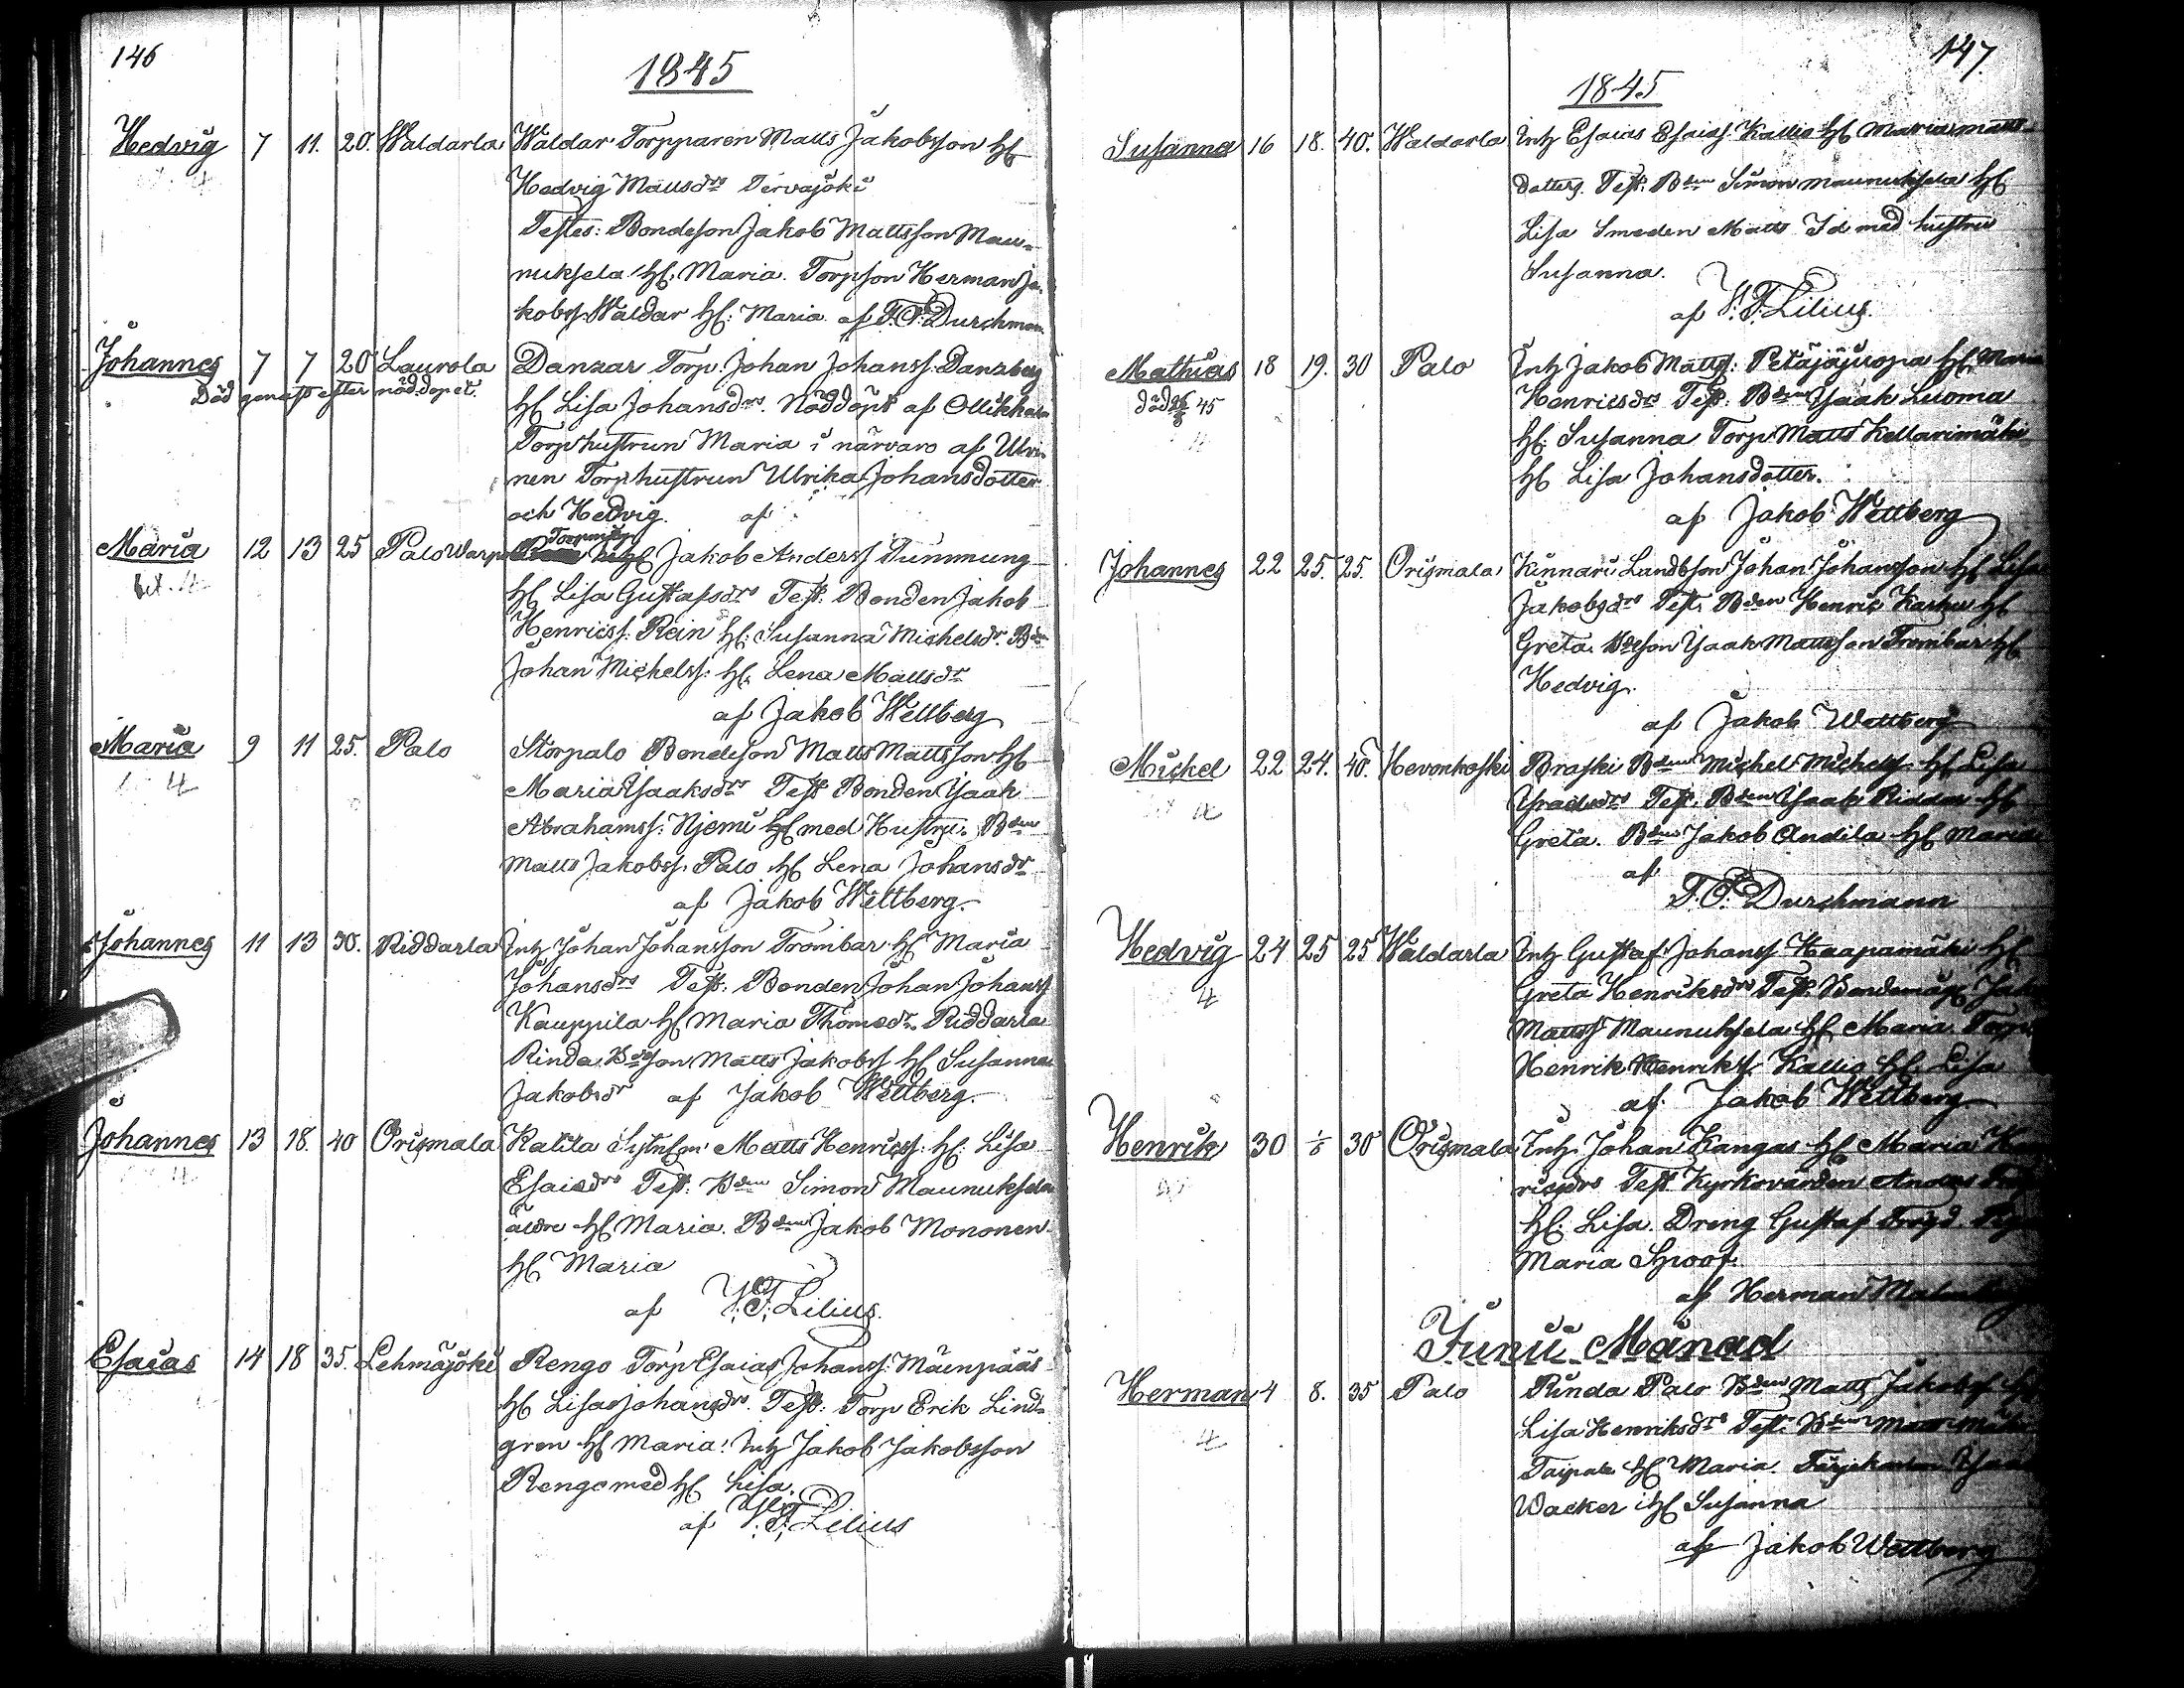 146
1845
Hedvig 7 11. 20. Waldarla Waldar Torpparen Matts Jakobsson Hℓ
Hedvig Mattsdr Tervajoki
Testes: Bondeson Jakob Mattsson Mau-
nuksela Hℓ. Maria. Torpson Herman Ja-
kobss. Waldar Hℓ: Maria af F.O. Durchman
Johannes 7 7 20 Laurola Danzar Torp. Johan Johanss. Danzberg
Död genast efter nöddopet. Hℓ Lisa Johansdr. Nöddöpt af Ollikkala
Torphustrun Maria i närvaro af Ulri-
nen Torphustrun Ulrika Johansdotter
och Hedvig. af
Maria 12 13 25 Palo Warp Jakob Anderss Tummung
bet. 4 Hℓ Lisa Gustafsdr Test: Bonden Jakob
Henricss: Rein Hℓ: Susanna Michelsdr. Bden
Johan Michelss: Hℓ. Lena Mattsdr
af Jakob Wettberg
Maria 9 11 25. Palo Storpalo Bondeson Matts Mattsson Hℓ
4 Maria Ysaaksdr Test Bonden Ysaak
Abrahamss. Njemi Hℓ med Hustru. Bden
Matts Jakobss. Palo Hℓ Lena Johansdr
af Jakob Wettberg.
Johannes 11 13 30. Riddarla Inh Johan Johansson Trombar Hℓ Maria
Johansdr Test. Bonden Johan Johanss
Kauppila Hℓ Maria Thomsdr. Riddarla
Rinda Bdson Matts Jakobss Hℓ Susanna
Jakobsdr af Jakob Wettberg.
Johannes 13 18. 40 Orismala Katila Matts Henricss. Hℓ. Lisa
4 Esaiedr Test: Bden Simon Maunuksela
äldre Hℓ Maria. Bden Jakob Mononen
Hℓ Maria
af V.F. Lilius.
Esaias 14 18 35. Lehmäjoki Rengo Torp Esaias Johanss. Mäenpääs
Hℓ Lisa Johansdr. Test: Torp Erik Lind-
gren Hℓ Maria: Inh Jakob Jakobsson
Rengo med Hℓ Lisa.
af V.F. Lilius
147.
1845
Susanna 16 18. 40. Waldarla Inh Esaias Esaiss. Kallio Hℓ Maria Matts-
dotters. Test. Bden Simon Maunuksela Hℓ
Lisa Smeden Matts Id med hustru
Susanna.
af V.F. Lilius.
Mathias 18 19. 30 Palo Inh Jakob Matts: Petäjäjuopa Hℓ Maria
död 45 Henricsdr Test: Bden Ysaak Luoma
Hℓ. Susanna Torp. Matts Kellarimäki
Hℓ Lisa Johansdotter.
af Jakob Wettberg
Johannes 22 25. 25. Orismala Kinnari Landbson Johan Johansson Hℓ Lisa
Jakobsdr Test. Bden Henric Karhu Hℓ
Greta. Bdeson Ysaak Mattsson Trombar Hℓ.
Hedvig.
af Jakob Wettberg
Mickel 22 24. 40. Hevonkoski Braski Bden Michel Michels. Hℓ Lisa
4 Ysacksdr Test. Bden Ysaak Riddar Hℓ
Greta. Bden Jakob Andila Hℓ Maria
af
F.O. Durchmann
Hedvig 24 25 25 Waldarla Inh Gustaf Johanss Haapamäki Hℓ
4 Greta Henriksdr Test.
Mattss Maunuksela Hℓ Maria Torp
Henrik Henrikss Kallio Hℓ. Lisa
af. Jakob Wettberg
Henrik 30 30 Orismala Inh. Johan Kangas Hℓ Maria
Test Kyrkovärden Anders
Hℓ. Lisa. Dreng Gustaf
Maria Sproof.
af Herman
Junii Månad
Herman 4 8. 35 Palo Rinda Palo Bden Matts Jakobss
4 Lisa Henriksdr Test. Bden
Taipale Hℓ Maria.
Wacker Hℓ Susanna
af Jakob Wettberg